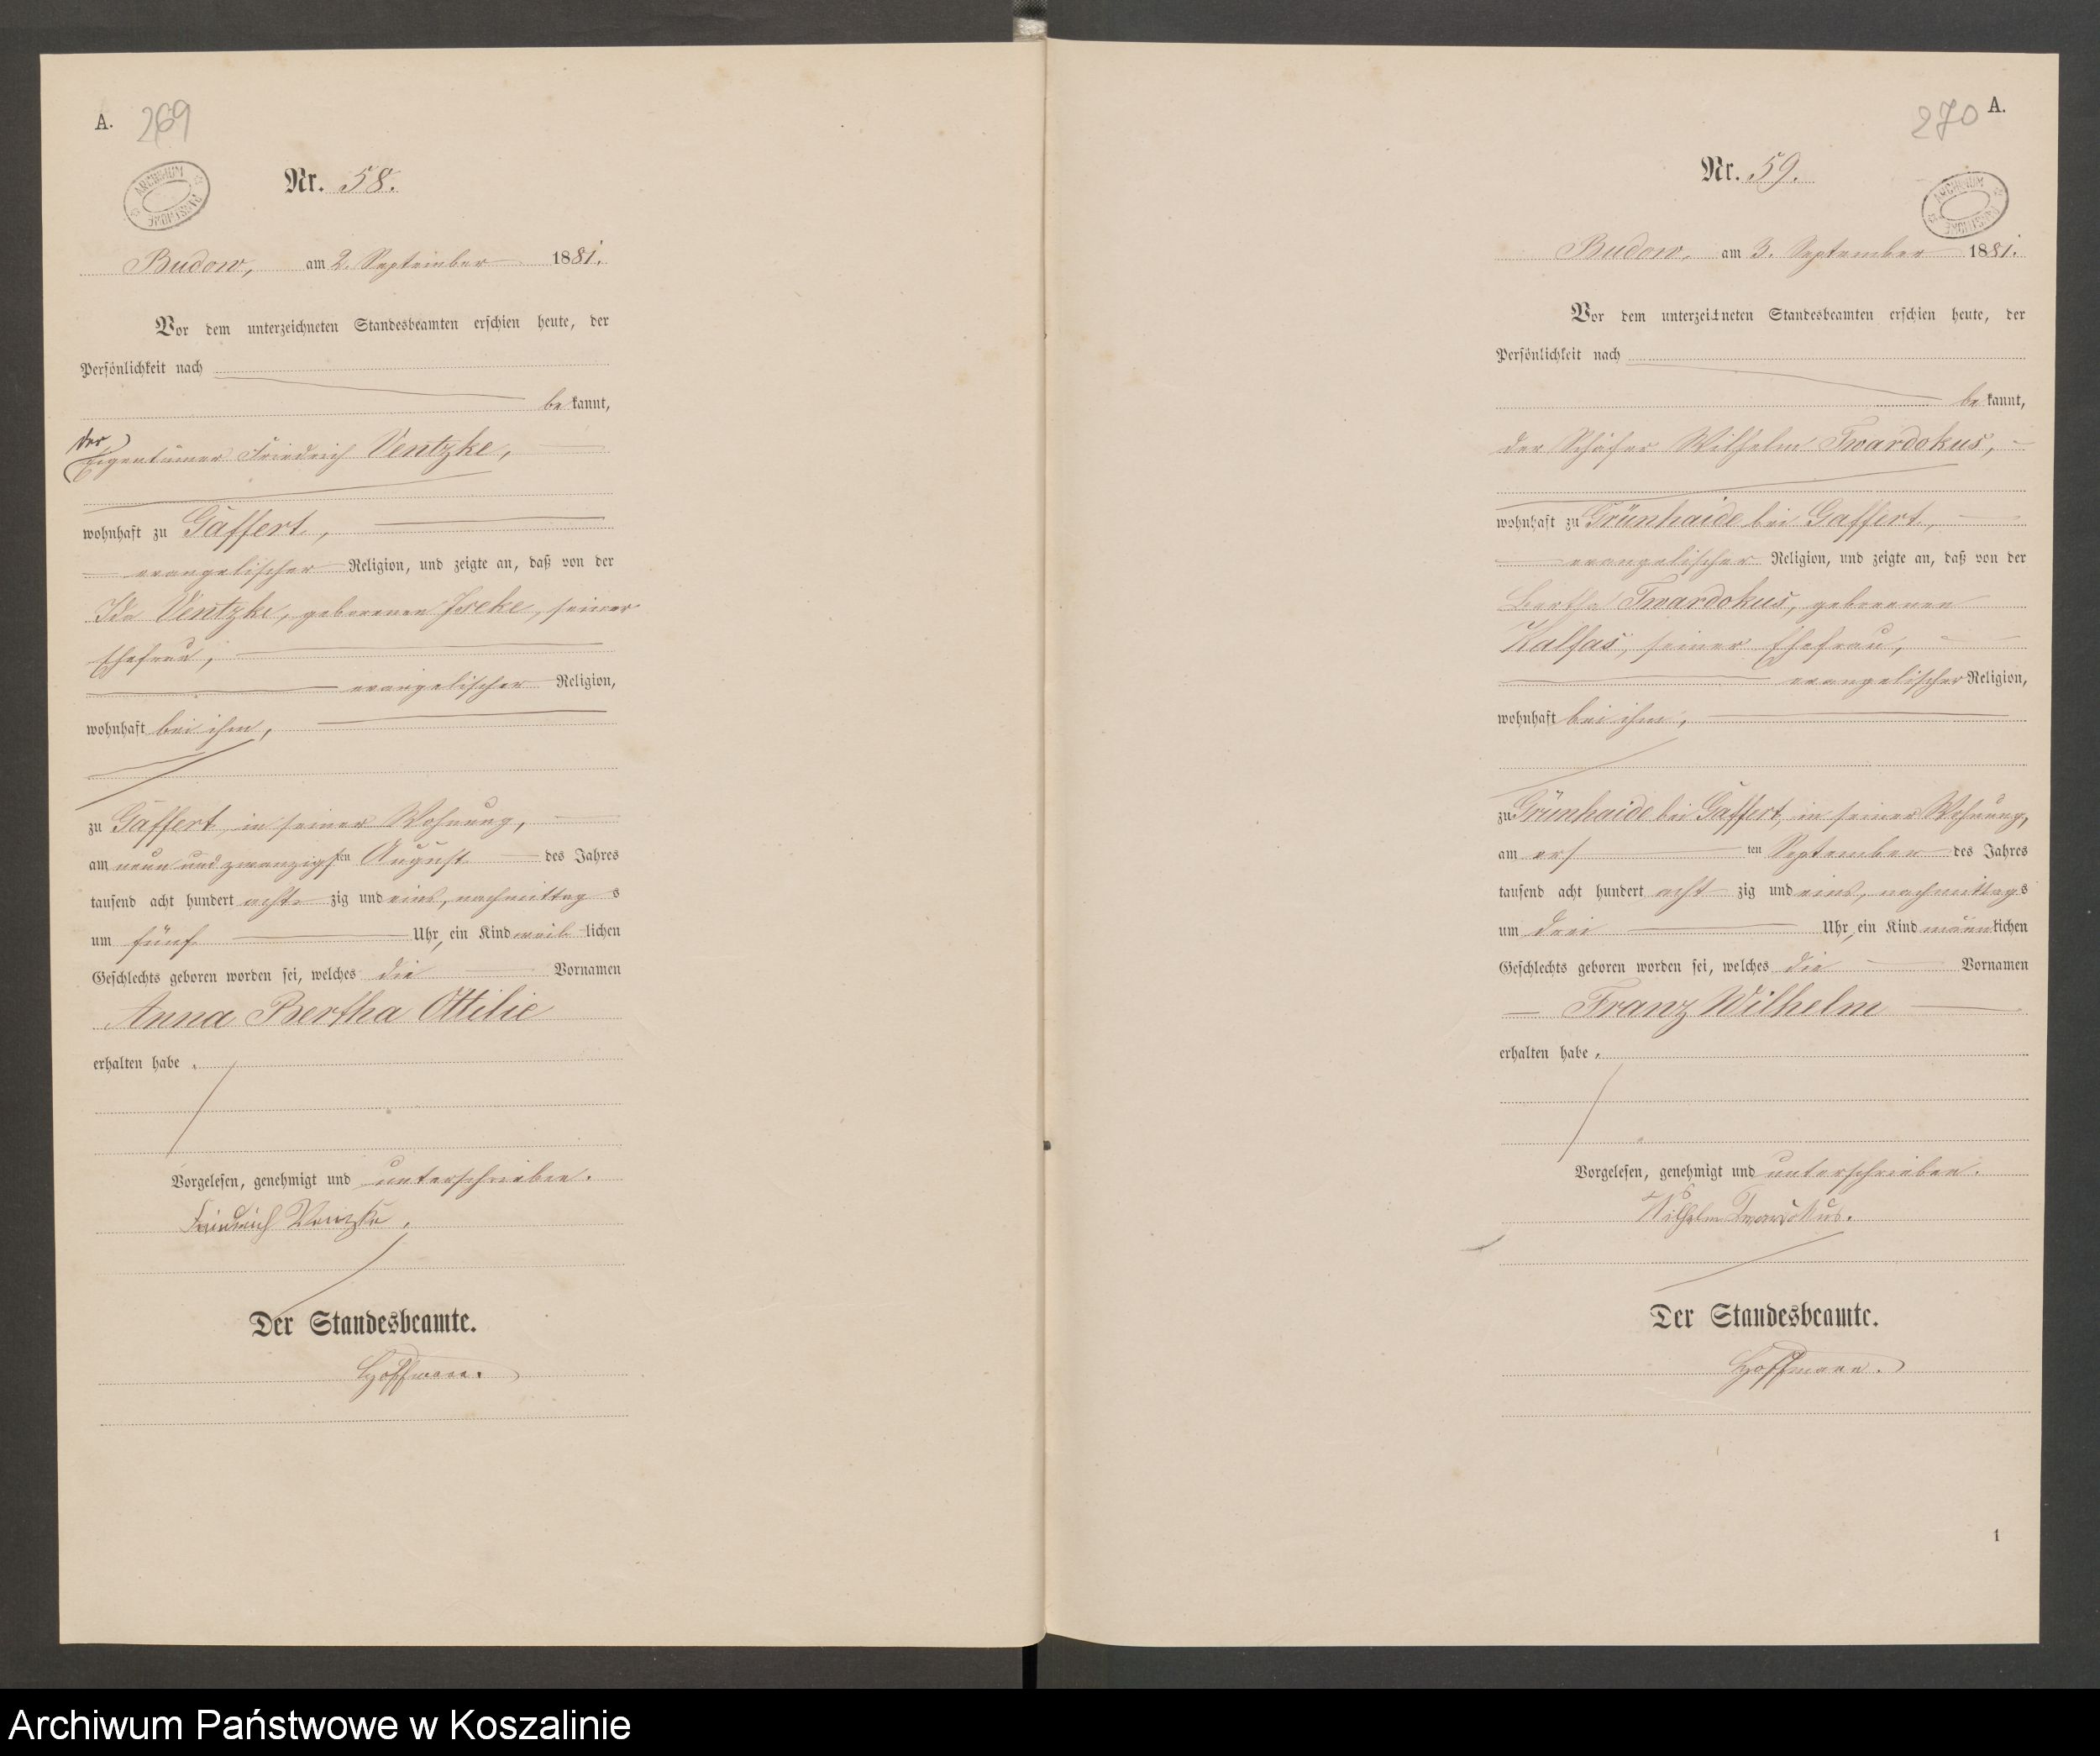 A. 269
ARCHIWUM PAŃSTWOWE
Nr. 58.
Budow, am 2. September 1881.
Vor dem unterzeichneten Standesbeamten erschien heute, der
Persönlichkeit nach
be kannt,
der
Eigentümer Friedrich Ventzke,
wohnhaft zu Gaffert,
evangelischer Religion, und zeigte an, daß von der
Ida Ventzke, geborenen seiner
Ehefrau,
evangelischer Religion,
wohnhaft bei ihm,
zu Gaffert, in seiner Wohnung,
am neun und zwanzigsten August des Jahres
tausend acht hundert acht zig und eins, nachmittag s
um fünf Uhr, ein Kind weib lichen
Geschlechts geboren worden sei, welches die Vornamen
Anna Bertha Ottilie
erhalten habe.
Vorgelesen, genehmigt und unterschrieben.
Friedrich Venzke,
Der Standesbeamte.
Hoffmann.
270 A.
ARCHIWUM PAŃSTWOWE
Nr. 59.
Budow, am 3. September 1881.
Vor dem unterzeichneten Standesbeamten erschien heute, der
Persönlichkeit nach
be kannt,
der Schäfer Wilhelm Twardokus,
wohnhaft zu Grünhaide bei Gaffert,
evangelischer Religion, und zeigte an, daß von der
Bertha Twardokus, geborenen
Kalfas, seiner Ehefrau,
evangelischer Religion,
wohnhaft bei ihm,
zu Grünhaide bei Gaffert, in seiner Wohnung,
am ers ten September des Jahres
tausend acht hundert acht zig und eins, nachmittag s
um drei Uhr, ein Kind männ lichen
Geschlechts geboren worden sei, welches die Vornamen
Franz Wilhelm
erhalten habe.
Vorgelesen, genehmigt und unterschrieben.
Wilhelm Twardokus.
Der Standesbeamte.
Hoffmann.
1
Archiwum Państwowe w Koszalinie